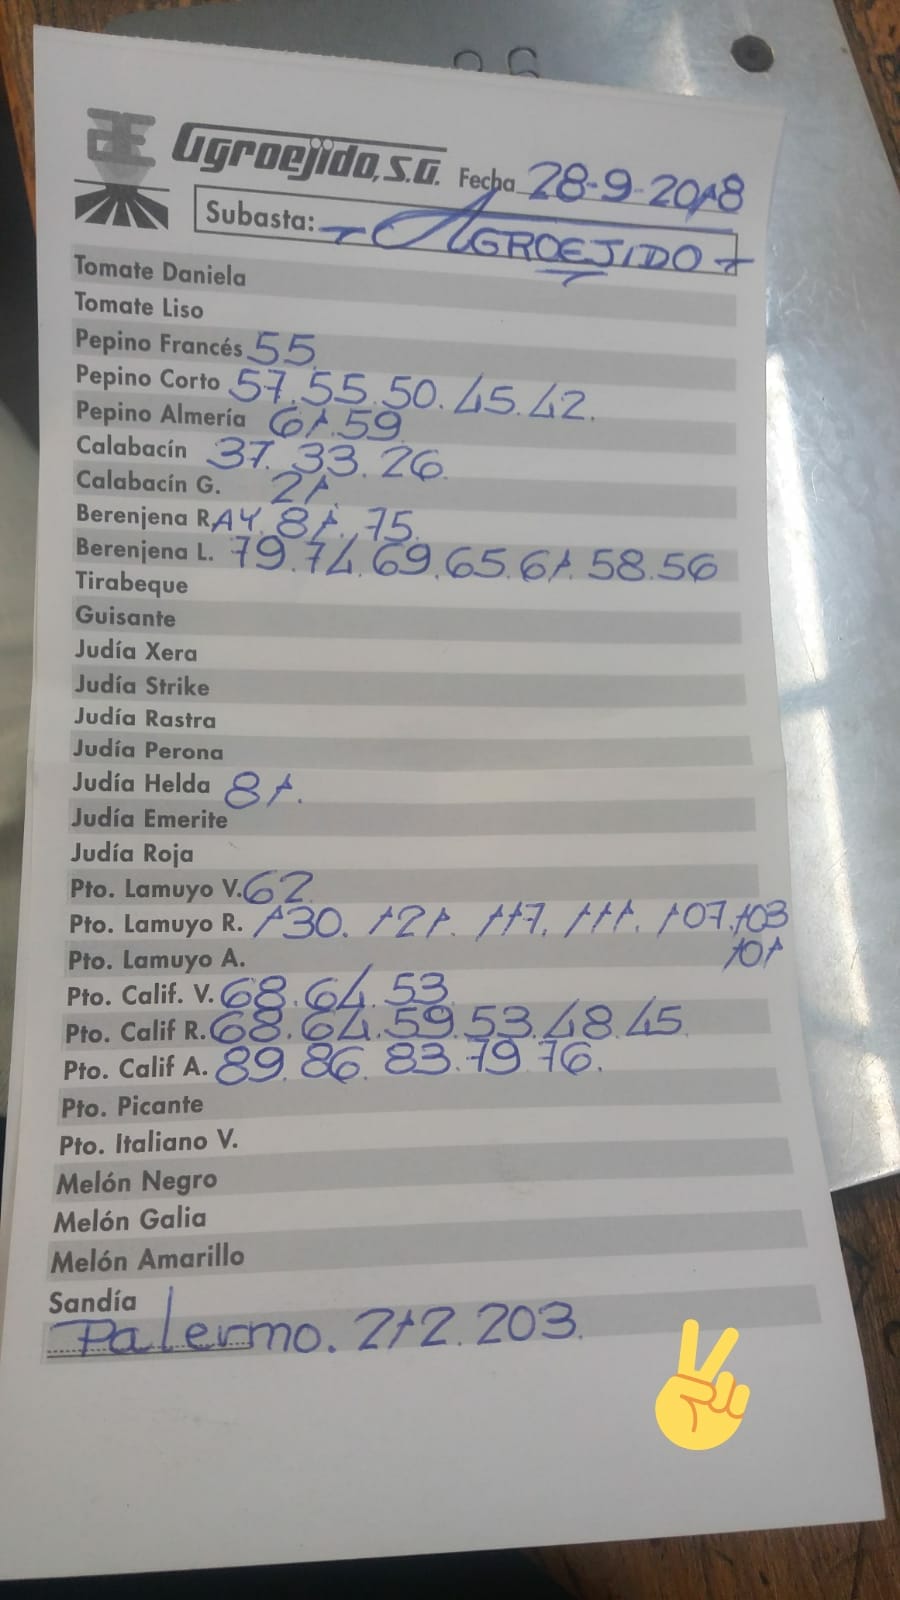 Agroejido, S.A. Fecha 28-9-2018
Subasta: AGROEJIDO
Tomate Daniela
Tomate Liso
Pepino Francés 55
Pepino Corto 57.55.50.45.42.
Pepino Almería 61.59
Calabacín 37.33.26.
Calabacín G. 21.
Berenjena RAY. 81.75.
Berenjena L. 79.74.69.65.61.58.56
Tirabeque
Guisante
Judía Xera
Judía Strike
Judía Rastra
Judía Perona
Judía Helda 81.
Judía Emerite
Judía Roja
Pto. Lamuyo V. 62
Pto. Lamuyo R. 130. 121. 117. 111. 107.103
Pto. Lamuyo A. 101
Pto. Calif. V. 68.64.53
Pto. Calif R. 68.64.59.53.48.45
Pto. Calif A. 89.86.83.79.76.
Pto. Picante
Pto. Italiano V.
Melón Negro
Melón Galia
Melón Amarillo
Sandía
Palermo. 212.203.